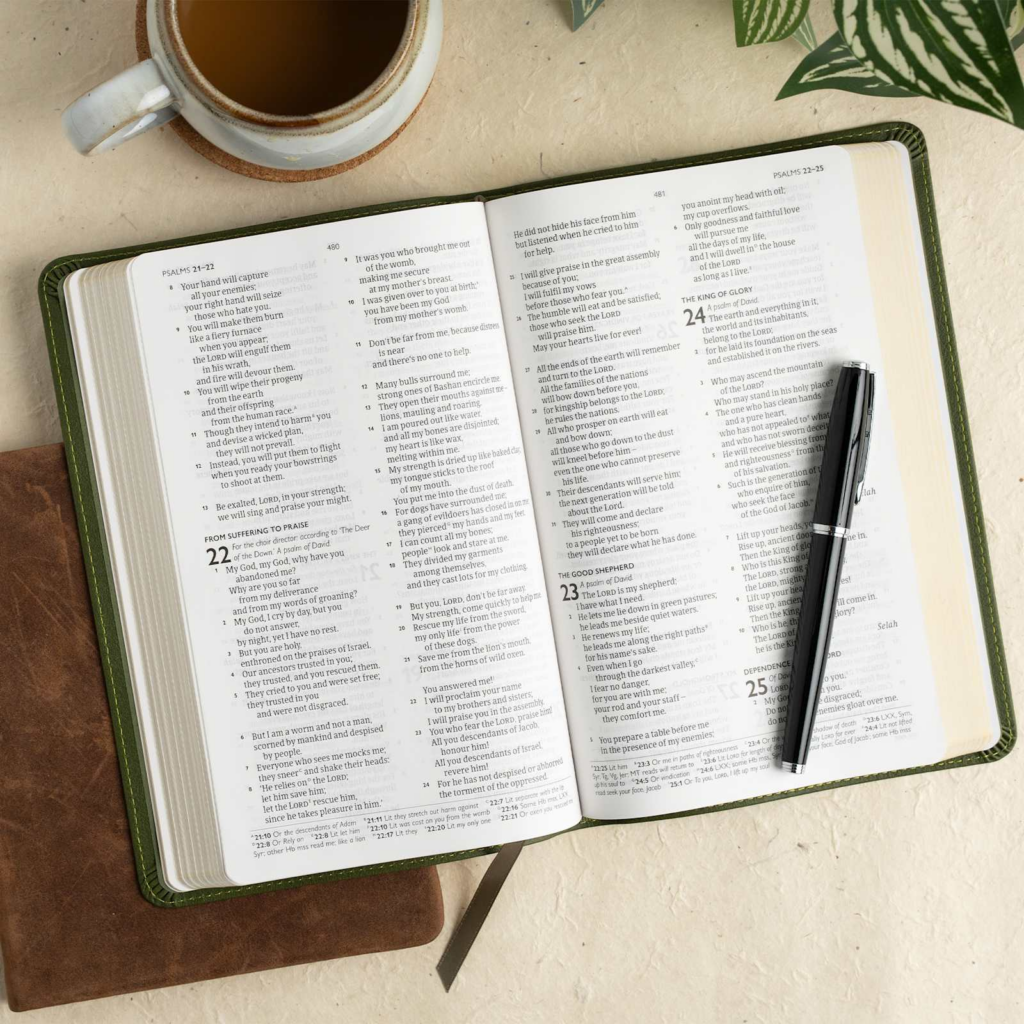 480
PSALMS 21–22
8 Your hand will capture
all your enemies;
your right hand will seize
those who hate you.
9 You will make them burn
like a fiery furnace
when you appear;
the LORD will engulf them
in his wrath,
and fire will devour them.
10 You will wipe their progeny
from the earth
and their offspring
from the human race.
11 Though they intend to harm you
and devise a wicked plan,
they will not prevail.
12 Instead, you will put them to flight
when you ready your bowstrings
to shoot at them.
13 Be exalted, LORD, in your strength;
we will sing and praise your might.
FROM SUFFERING TO PRAISE
22 For the choir director: according to 'The Deer
of the Dawn.' A psalm of David.
1 My God, my God, why have you
abandoned me?
Why are you so far
from my deliverance
and from my words of groaning?
2 My God, I cry by day, but you
do not answer,
by night, yet I have no rest.
3 But you are holy,
enthroned on the praises of Israel.
4 Our ancestors trusted in you;
they trusted, and you rescued them.
5 They cried to you and were set free;
they trusted in you
and were not disgraced.
6 But I am a worm and not a man,
scorned by mankind and despised
by people.
7 Everyone who sees me mocks me;
they sneer and shake their heads:
8 'He relies on the LORD;
let him save him;
let the LORD rescue him,
since he takes pleasure in him.'
9 It was you who brought me out
of the womb,
making me secure
at my mother's breast.
10 I was given over to you at birth;
you have been my God
from my mother's womb.
11 Don't be far from me, because distress
is near
and there's no one to help.
12 Many bulls surround me;
strong ones of Bashan encircle me.
13 They open their mouths against me –
lions, mauling and roaring.
14 I am poured out like water,
and all my bones are disjointed;
my heart is like wax,
melting within me.
15 My strength is dried up like baked clay;
my tongue sticks to the roof
of my mouth.
You put me into the dust of death.
16 For dogs have surrounded me;
a gang of evildoers has closed in on me;
they pierced my hands and my feet.
17 I can count all my bones;
people look and stare at me.
18 They divided my garments
among themselves,
and they cast lots for my clothing.
19 But you, LORD, don't be far away.
My strength, come quickly to help me.
20 Rescue my life from the sword,
my only life from the power
of these dogs.
21 Save me from the lion's mouth,
from the horns of wild oxen.
You answered me!
22 I will proclaim your name
to my brothers and sisters;
I will praise you in the assembly.
23 You who fear the LORD, praise him!
All you descendants of Jacob,
honour him!
All you descendants of Israel,
revere him!
24 For he has not despised or abhorred
the torment of the oppressed.
21:10 Or the descendants of Adam 21:11 Lit they stretch out harm against 22:7 Lit separate with the
22:8 Or Rely on 22:8 Lit let him 22:10 Lit was cast on you from the womb 22:16 Some Hb mss, LXX,
Syr; other Hb mss read me; like a lion 22:17 Lit They 22:20 Lit my only one 22:21 Or oxen you rescued
481
PSALMS 22–25
He did not hide his face from him
but listened when he cried to him
for help.
25 I will give praise in the great assembly
because of you;
I will fulfil my vows
before those who fear you.
26 The humble will eat and be satisfied;
those who seek the LORD
will praise him.
May your hearts live for ever!
27 All the ends of the earth will remember
and turn to the LORD.
All the families of the nations
will bow down before you,
28 for kingship belongs to the LORD;
he rules the nations.
29 All who prosper on earth will eat
and bow down;
all those who go down to the dust
will kneel before him –
even the one who cannot preserve
his life.
30 Their descendants will serve him;
the next generation will be told
about the Lord.
31 They will come and declare
his righteousness;
to a people yet to be born
they will declare what he has done.
THE GOOD SHEPHERD
23 A psalm of David.
The LORD is my shepherd;
I have what I need.
2 He lets me lie down in green pastures;
he leads me beside quiet waters.
3 He renews my life;
he leads me along the right paths
for his name's sake.
4 Even when I go
through the darkest valley,
I fear no danger,
for you are with me;
your rod and your staff –
they comfort me.
5 You prepare a table before me
in the presence of my enemies;
you anoint my head with oil;
my cup overflows.
6 Only goodness and faithful love
will pursue me
all the days of my life,
and I will dwell in the house
of the LORD
as long as I live.
THE KING OF GLORY
24 A psalm of David.
The earth and everything in it,
the world and its inhabitants,
belong to the LORD;
2 for he laid its foundation on the seas
and established it on the rivers.
3 Who may ascend the mountain
of the LORD?
Who may stand in his holy place?
4 The one who has clean hands
and a pure heart,
who has not appealed to what
and who has not sworn
5 He will receive blessing from
and righteousness from
of his salvation.
6 Such is the generation of
who enquire of him,
who seek the face
of the God of Jacob.
7 Lift up your heads, yo
Rise up, ancient doo
Then the King of glo in.
8 Who is this King of
The LORD, strong
the LORD, mighty
9 Lift up your heads
Rise up, ancie
Then the King ill come in.
10 Who is he, th lory?
The LORD of
he is the King
Selah
DEPENDENCE ORD
25 Of Dav
to you.
2 My God
Do no disgraced;
do no enemies gloat over me.
22:25 Lit him 23:3 Or me in paths of righteousness 23:4 Or the shadow of death 23:6 LXX, Syr,
24:4 Lit not lifted
24:5 Or vindication 24:6 LXX; some Hb mss,
read seek your face, Jacob 25:1 Or To you, LORD, I lift up my